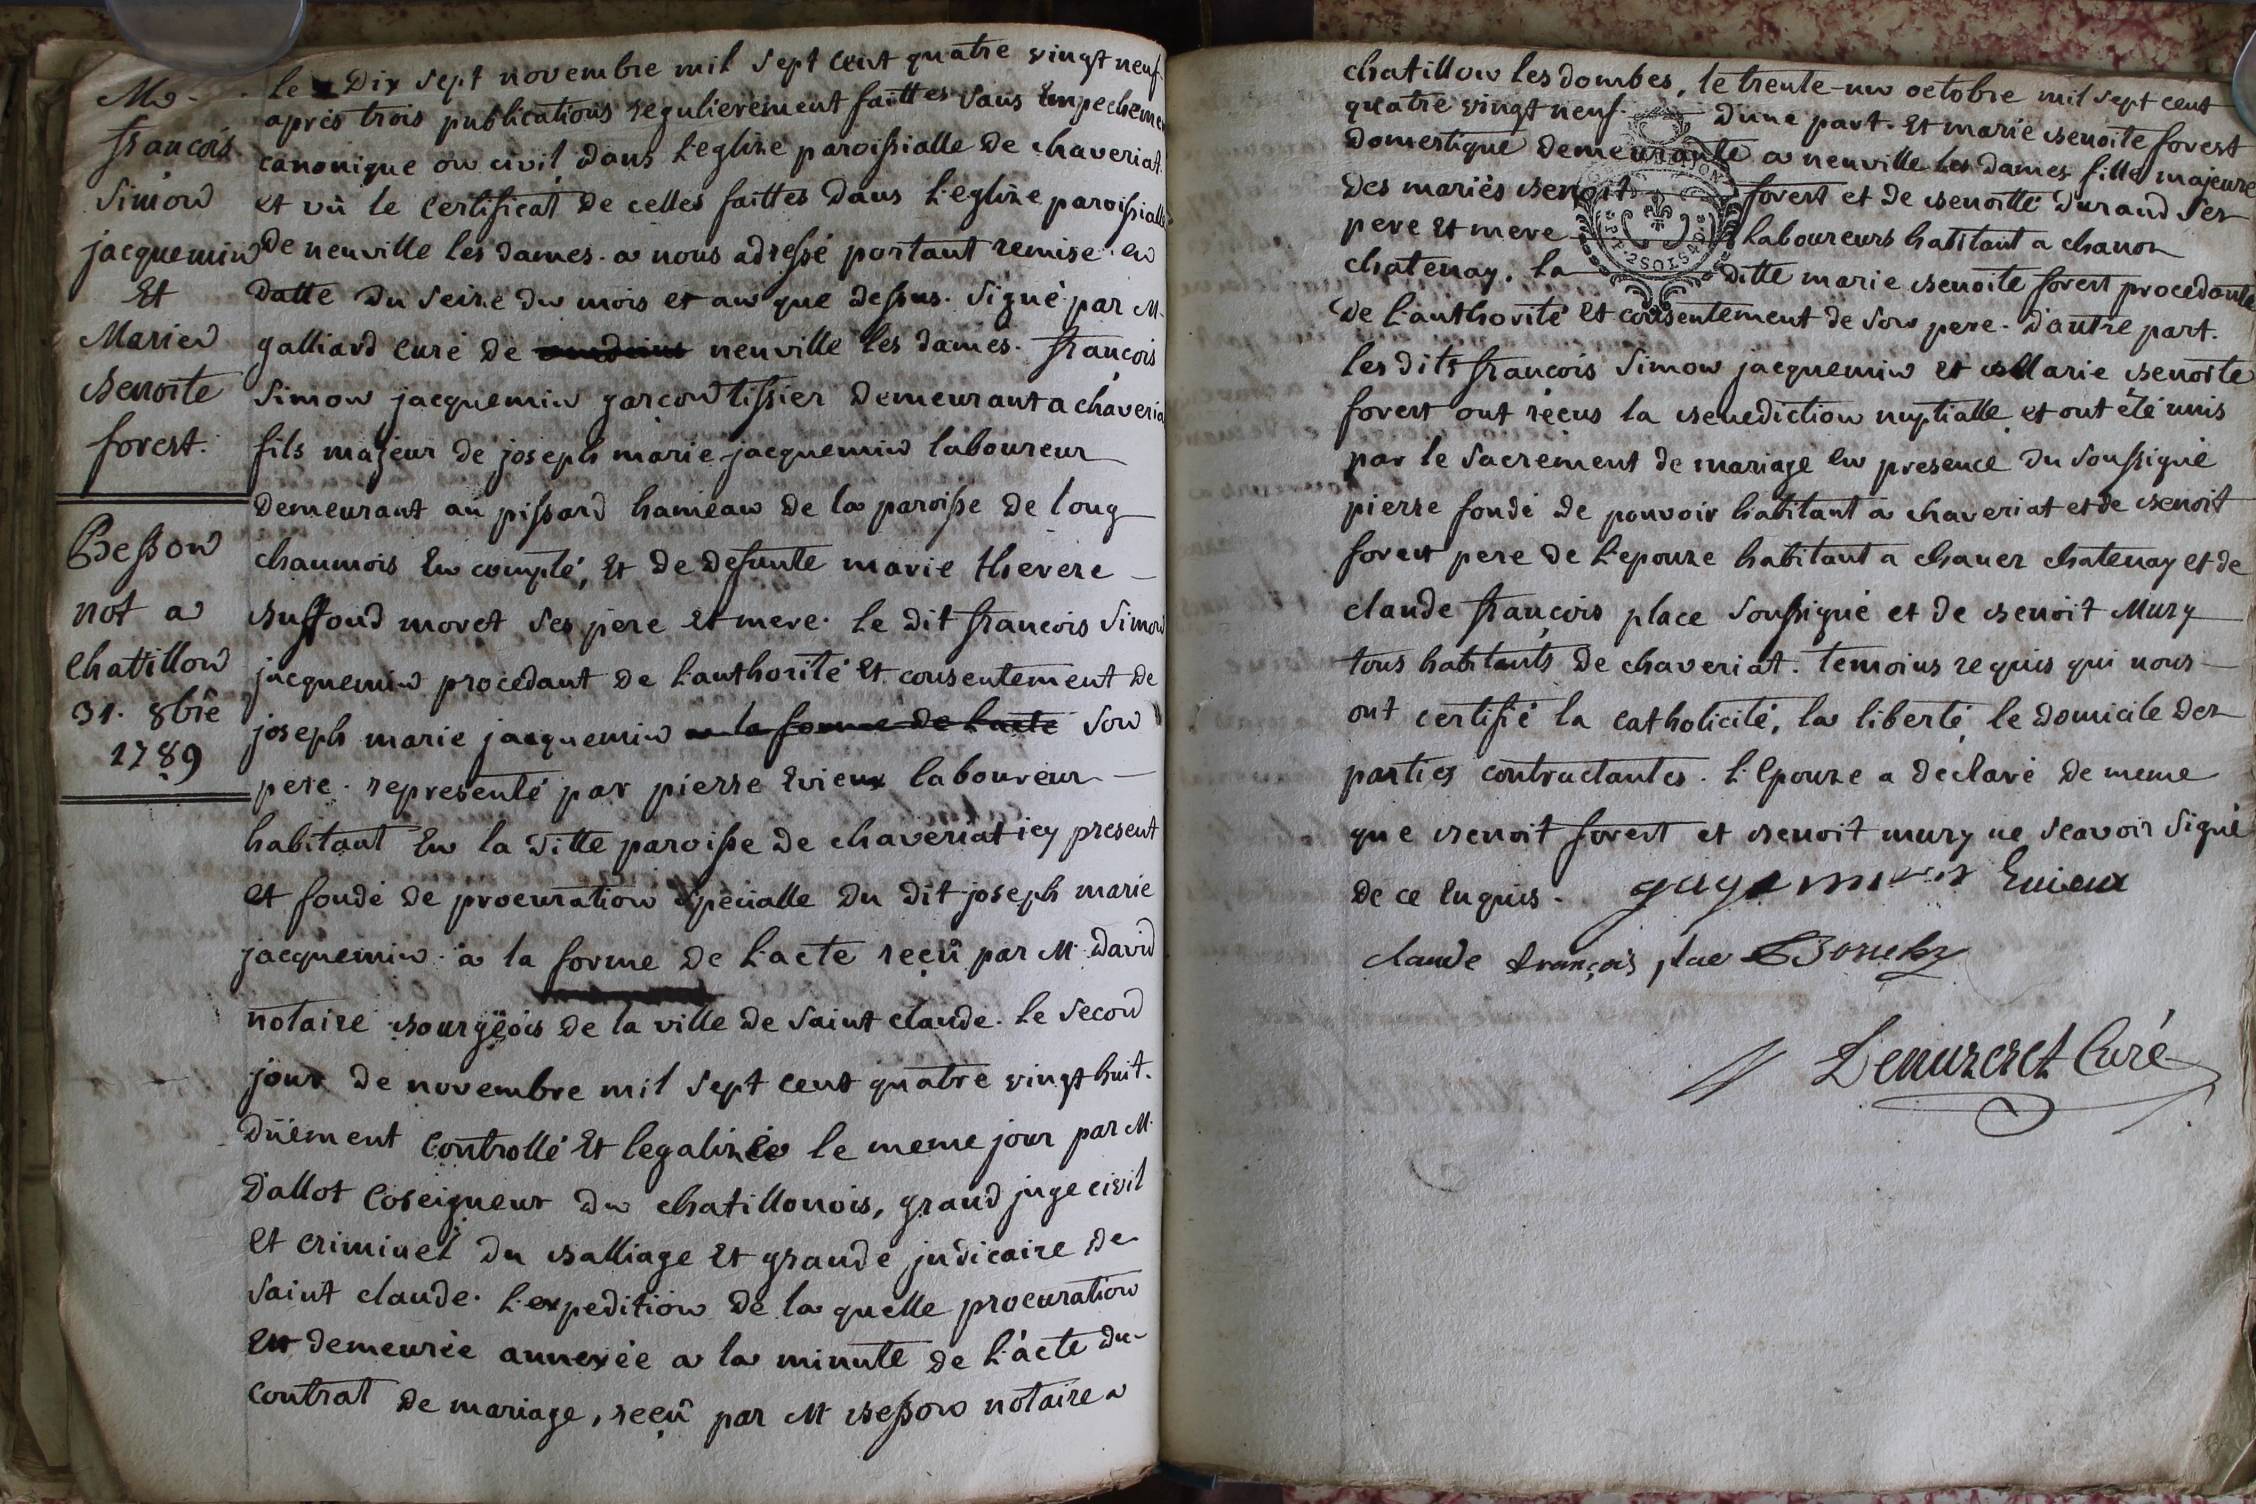 M.
françois
Simon
jacquemin
Et
Marie
Benoite
forest.
Besson
not a
chatillon
31. 8bre
1789
le Dix sept novembre mil sept cent quatre vingt neuf.
apres trois publications regulierement faittes sans Empecheme
canonique ou civil dans l'eglize paroissialle de chaveriat
et vû le certificat de celles faittes dans l'eglize paroissialle
de neuville les dames. a nous adressé portant remise. en
datte du seize du mois et an que dessus. signé par M.
galliard curé de neuville les dames. françois
Simon jacquemin garcon tissier demeurant a chaveria
fils majeur de joseph marie jacquemin laboureur
demeurant au pissard hameau de la paroisse de long
chaumois En comté, Et de defunte marie therere
buffond moret ses pere et mere. le dit francois Simon
jacquemin procedant de l'authorité et consentement de
joseph marie jacquemin a la forme de l'acte son
pere. representé par pierre Evieux laboureur
habitant En la ditte paroisse de chaveriat icy present
et fondé de procuration speciallle du dit joseph marie
jacquemin. a la forme de l'acte reçû par M. David
notaire bourgëois de la ville de saint claude. le second
jour de novembre mil sept cent quatre vingt huit.
düement controllé Et legalizée le meme jour par M.
Dallot coseigneur du chatillonois, grand juge civil
et criminel du balliage Et grande judicaire de
saint claude. l'expedition de la quelle procuration
Est demeurée annexée a la minute de l'acte du
contrat de mariage, reçû par M besson notaire a
chatillon les dombes, le trente-un octobre mil sept cent
quatre vingt neuf. d'une part. Et marie benoite forest
domestique demeurante a neuville les dames fille majeure
des mariés benoit forest et de benoitte durand ses
pere et mere laboureurs habitant a chanoz
chatenay. la ditte marie benoite forest procedante
de l'authorité et consentement de son pere. d'autre part.
les dits françois Simon jacquemin et Marie benoite
forest ont réçus la benediction nuptialle et ont été unis
par le sacrement de mariage en presence du soussigné
pierre fondé de pouvoir habitant a chaveriat et de benoit
forest pere de l'epouze habitant a chanez chatenay et de
claude françois place soussigné et de benoit Mury
tous habitants de chaveriat. temoins requis qui nous
ont certifié la catholicité, la liberté, le domicile des
parties contractantes. l'Epouze a déclaré de meme
que benoit forest et benoit mury ne scavoir signé
de ce Enquis. Evieux
claude françois place
Denuzeret Curé